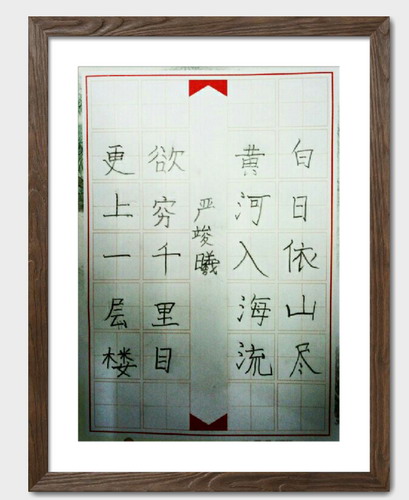 白日依山尽
黄河入海流
严竣曦
欲穷千里目
更上一层楼